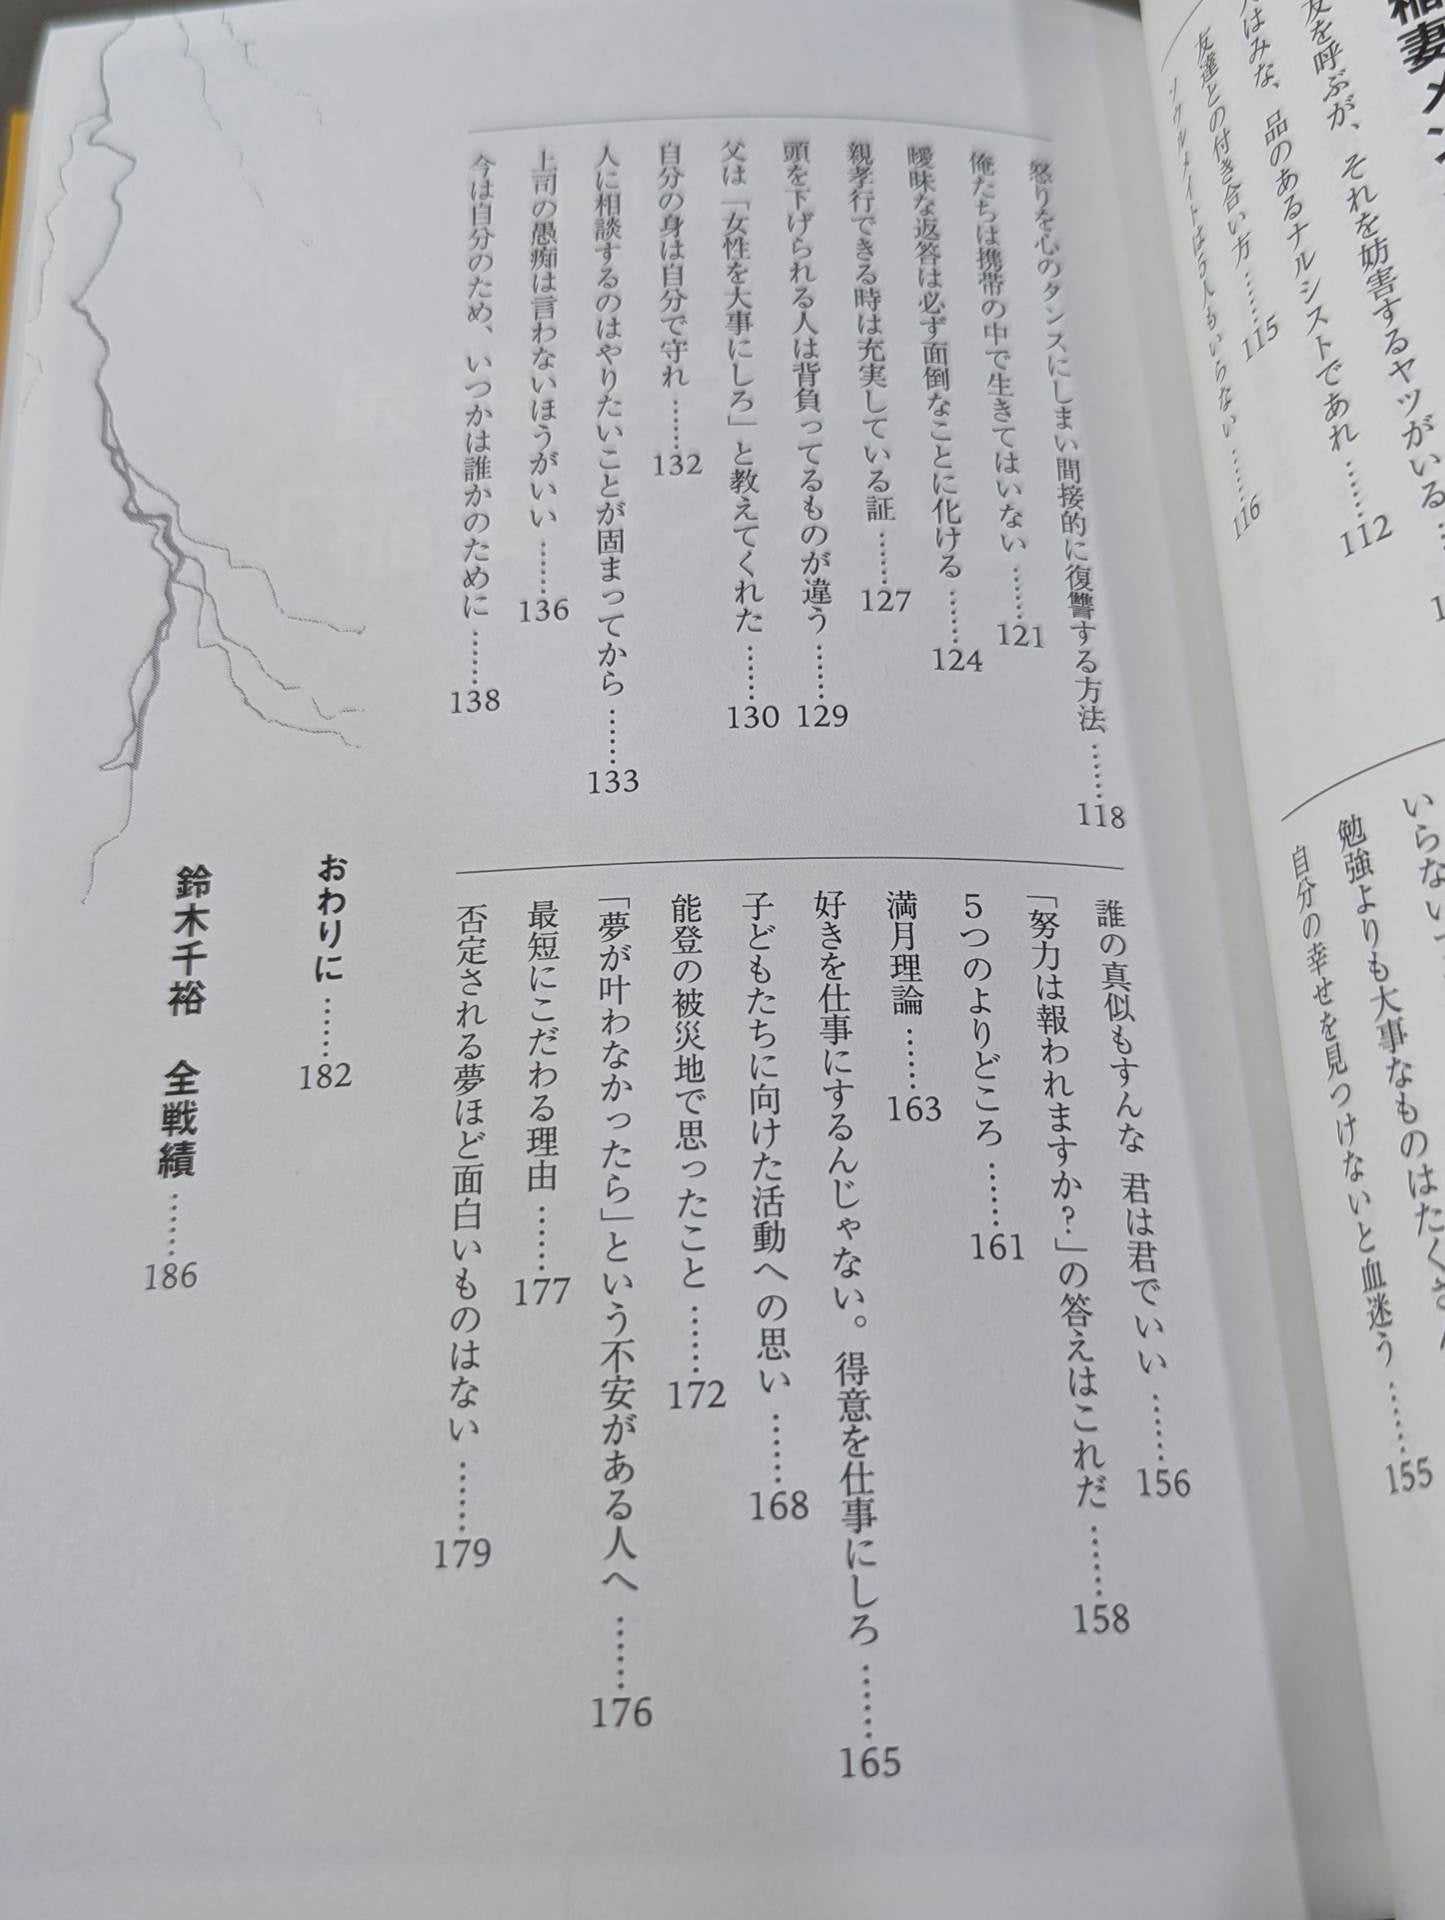 稲妻メン
友を呼ぶが、それを妨害するヤツがいる
人はみな、品のあるナルシストであれ……112
友達との付き合い方……115
ソウルメイトは5人もいらない……116
いらない
勉強よりも大事なものはたくさん
自分の幸せを見つけないと血迷う……155
怒りを心のタンスにしまい間接的に復讐する方法……118
俺たちは携帯の中で生きてはいない……121
曖昧な返答は必ず面倒なことに化ける……124
親孝行できる時は充実している証……127
頭を下げられる人は背負ってるものが違う……129
父は「女性を大事にしろ」と教えてくれた……130
自分の身は自分で守れ……132
人に相談するのはやりたいことが固まってから……133
上司の愚痴は言わないほうがいい……136
今は自分のため、いつかは誰かのために……138
誰の真似もすんな 君は君でいい……156
「努力は報われますか?」の答えはこれだ……158
5つのよりどころ……161
満月理論……163
好きを仕事にするんじゃない。得意を仕事にしろ……165
子どもたちに向けた活動への思い……168
能登の被災地で思ったこと……172
「夢が叶わなかったら」という不安がある人へ……176
最短にこだわる理由……177
否定される夢ほど面白いものはない……179
おわりに……182
鈴木千裕 全戦績……186